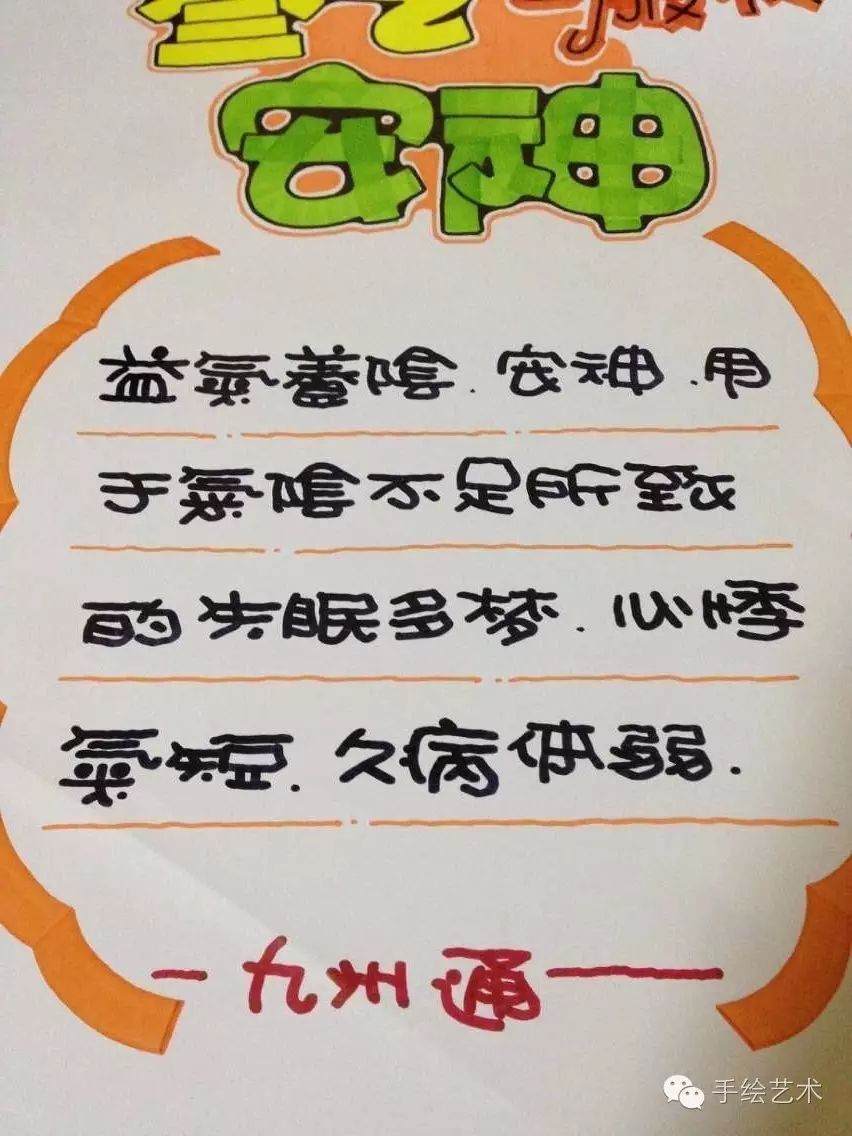 安神
益氣養陰.安神.用
于氣陰不足所致
的失眠多梦.心悸
氣短.久病体弱.
手绘艺术